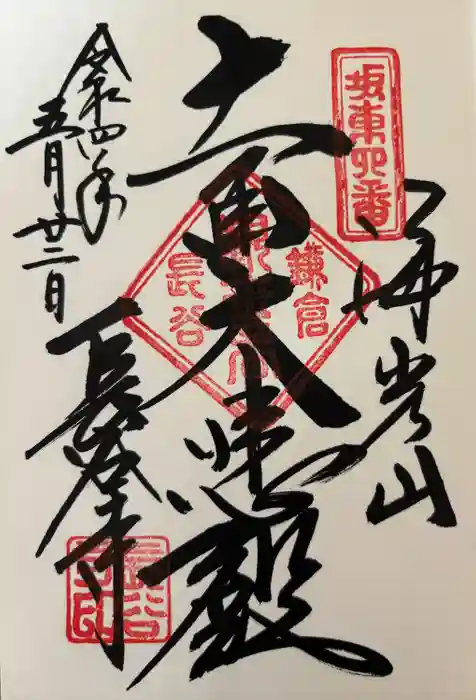 坂東四番
海光山
十一面大悲殿
鎌倉
長谷
令和四年
五月廿二日
長谷寺
長谷寺印